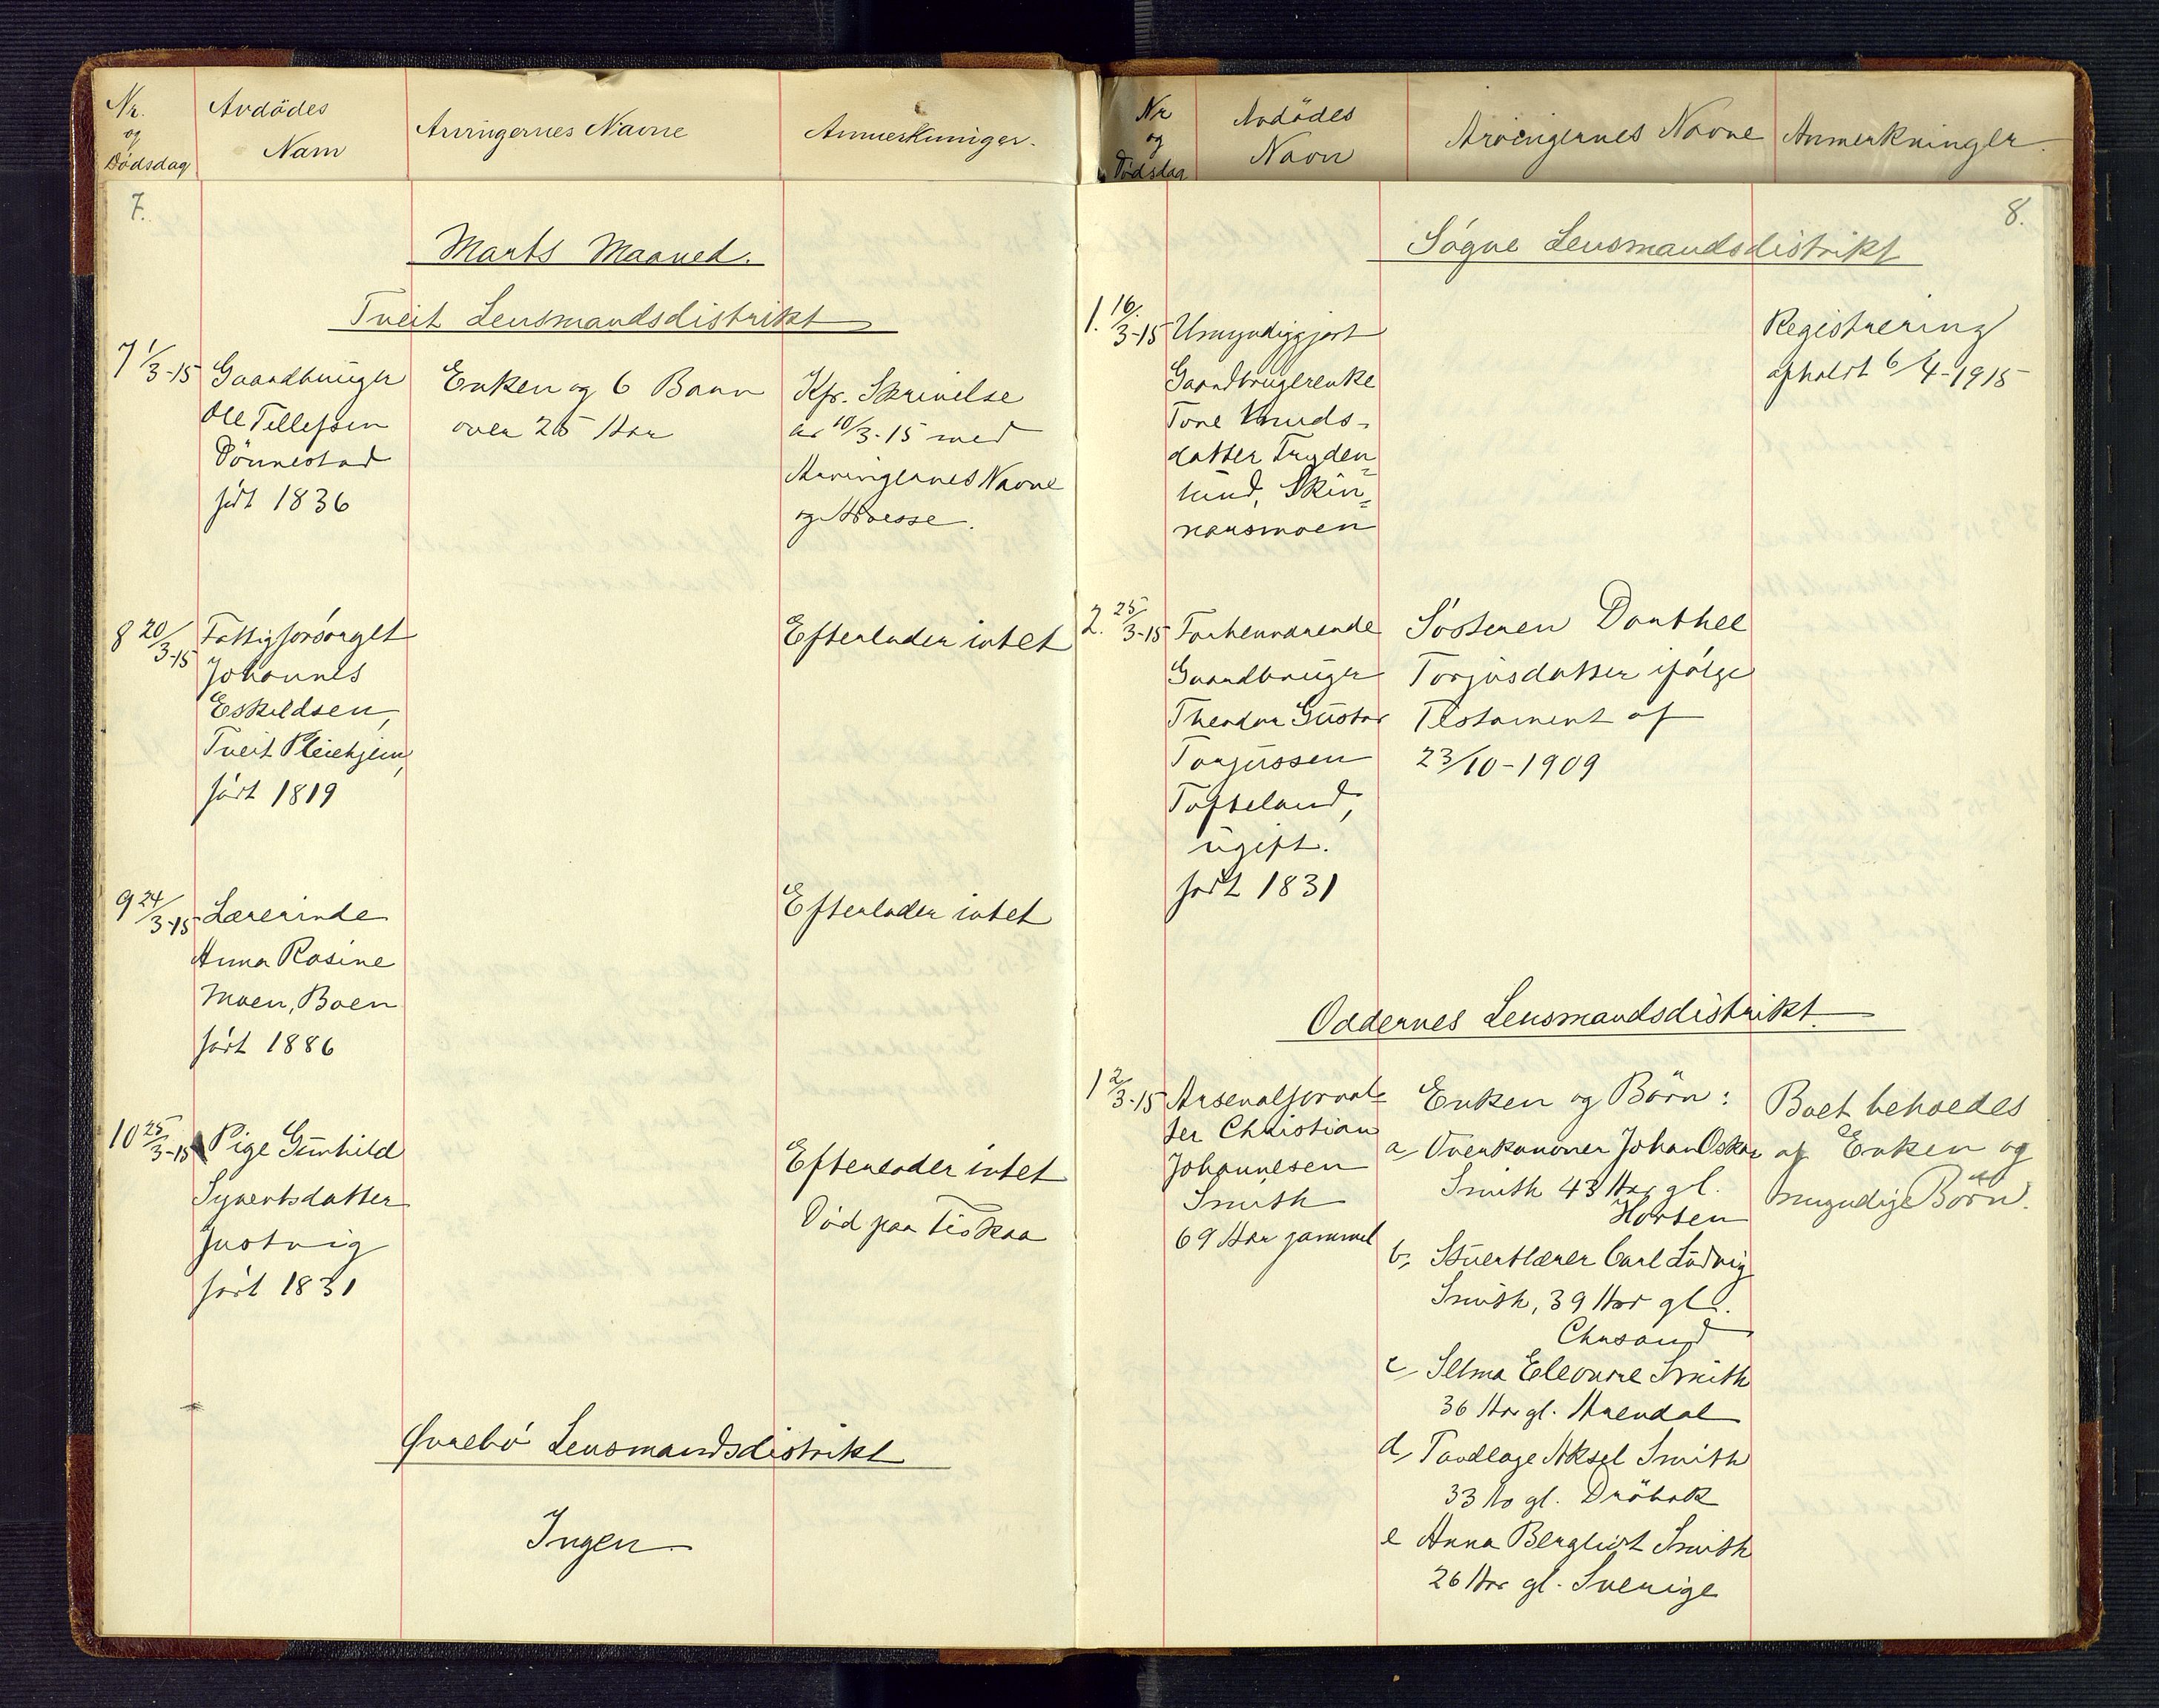 Nr.
og
Dødsdag
Avdødes
Navn
Arvingernes Navne
Anmerkninger.
7.
Marts Maaned.
Tveit Lensmandsdistrikt
7 1/3-15 Gaardbruger
Ole Tellefsen
Dønnestad
født 1836
Enken og 6 Barn
over 25 Aar
Kfr. Skrivelse
av 10/3-15 med
Arvingernes Navne
og Adresse.
8 20/3-15 Fattigforsørget
Johannes
Eskildsen,
Tveit Pleiehjem,
født 1819
Efterlader intet
9 24/3-15 Lærerinde
Anna Rosine
Moen, Boen
født 1886
Efterlader intet
10 25/3-15 Pige Gunhild
Syvertsdatter
Justvig
født 1831
Efterlader intet
Død paa Fiskaa
Øvrebø Lensmandsdistrikt
Ingen
Nr
og
Dødsdag
Avdødes
Navn
Arvingernes Navne
Anmerkninger.
8.
Søgne Lensmandsdistrikt
1. 16/3-15 Umyndiggjort
Gaardbrugerenke
Tone Knuds-
datter Tryden
lund, Skin=
narsmoen
Registrering
afholdt 6/4-1915
2. 25/3-15 Forhenværende
Gaardbruger
Theodor Gustav
Torjussen
Tofteland,
ugift.
født 1831
Søsteren Dorthee
Torjusdatter ifølge
Testament af
23/10-1909
Oddernes Lensmandsdistrikt
1 2/3-15 Arsenalforval=
ter Christian
Johannesen
Smith
69 Aar gammel
Enken og Børn:
a, Overkanoner Johan Oskar
Smith 43 Aar gl.
Horten
b, Stuertlærer Carl Ludvig
Smith, 39 Aar gl.
Chrsand
c, Selma Eleonore Smith
36 Aar gl. Arendal
d, Tandlæge Aksel Smith
33 Aar gl. Drøbak
e Anna Bergliot Smith
26 Aar gl. Sverige
Boet behoedes
af Enken og
myndige Børn.